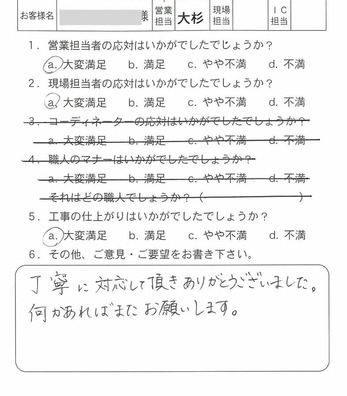 お客様名 様 営業担当 大杉 現場担当 IC担当
1．営業担当者の応対はいかがでしたでしょうか？
a. 大変満足 b. 満足 c. やや不満 d. 不満
2．現場担当者の応対はいかがでしたでしょうか？
a. 大変満足 b. 満足 c. やや不満 d. 不満
3．コーディネーターの応対はいかがでしたでしょうか？
a. 大変満足 b. 満足 c. やや不満 d. 不満
4．職人のマナーはいかがでしたでしょうか？
a. 大変満足 b. 満足 c. やや不満 d. 不満
それはどの職人でしょうか？（ ）
5．工事の仕上がりはいかがでしたでしょうか？
a. 大変満足 b. 満足 c. やや不満 d. 不満
6．その他、ご意見・ご要望をお書き下さい。
丁寧に対応して頂きありがとうございました。
何かあればまたお願いします。